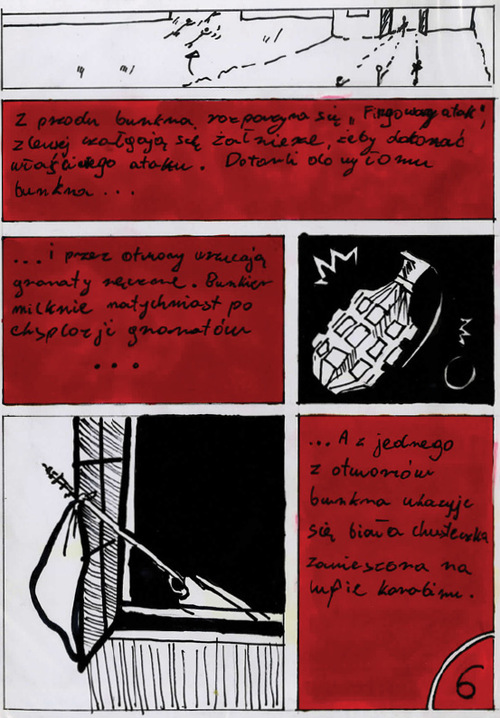 Z przodu bunkra rozpoczyna się „Fingowany atak",
z lewej czołgają się żołnierze, żeby dokonać
właściwego ataku. Dotarli do wyłomu
bunkra...
...i przez otwory wrzucają
granaty ręczne. Bunkier
milknie natychmiast po
eksplozji granatów
...
...A z jednego
z otworów
bunkra ukazuje
się biała chusteczka
zawieszona na
lufie karabinu.
6